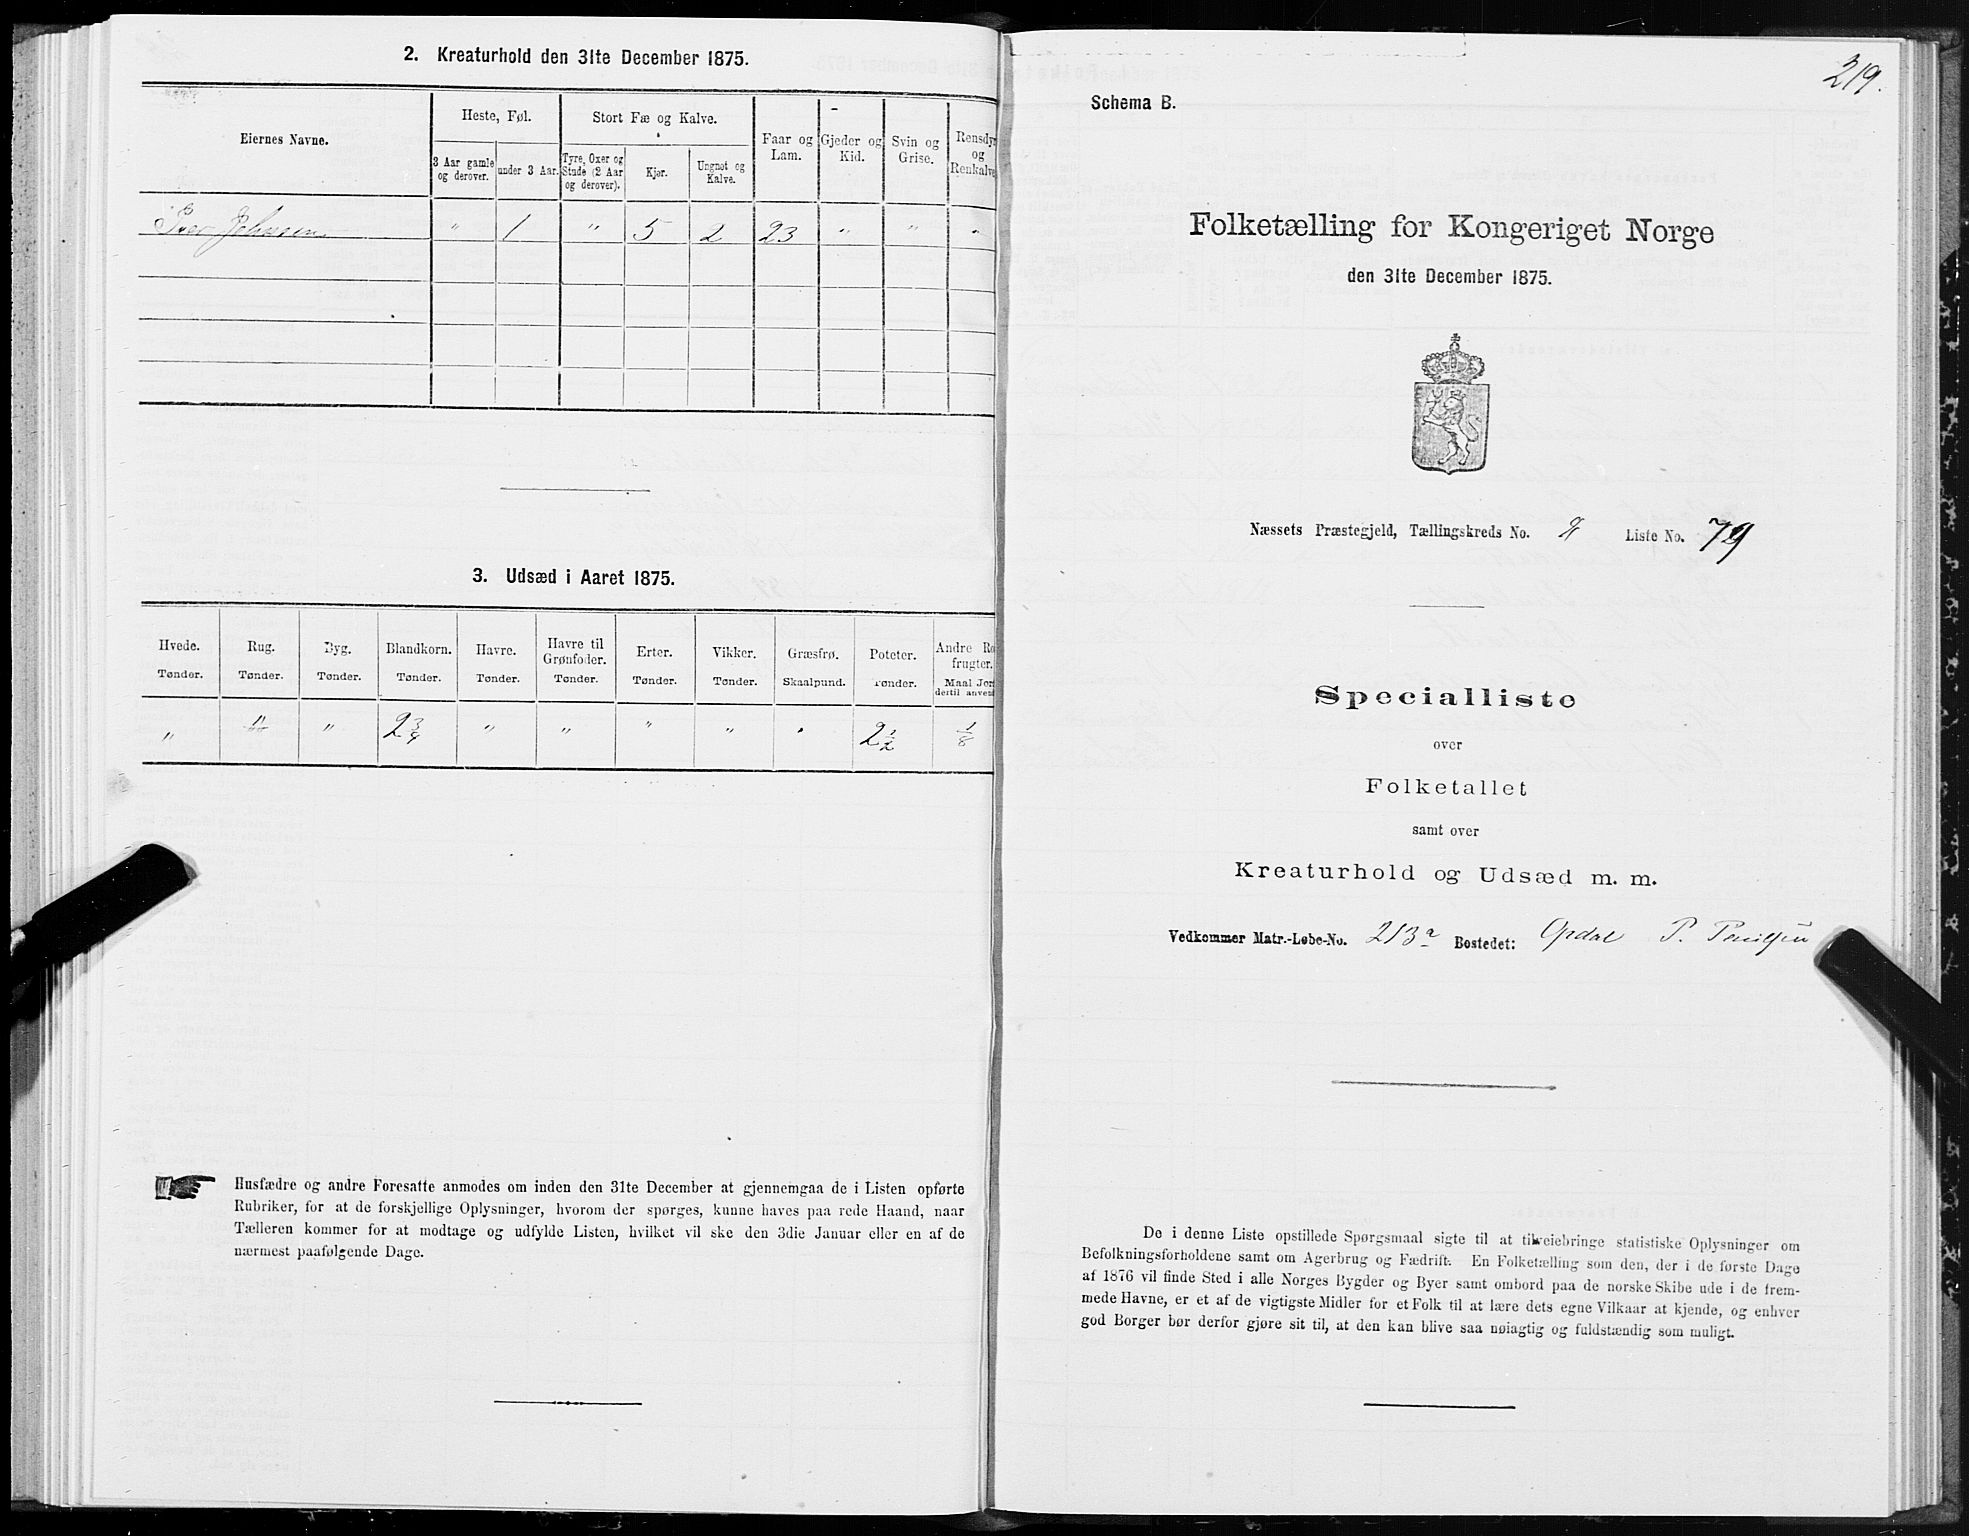 2. Kreaturhold den 31te December 1875.
Eiernes Navne.
Heste, Føl.
Stort Fæ og Kalve.
Faar og Lam.
Gjeder og Kid.
Svin og Grise.
Rensdyr og Renkalve
3 Aar gamle og derover.
under 3 Aar.
Tyre, Oxer og Stude (2 Aar og derover).
Kjør.
Ungnøt og Kalve.
Iver Johnsen " 1 " 5 2 23 " " "
3. Udsæd i Aaret 1875.
Hvede. Rug. Byg. Blandkorn. Havre. Havre til Grønfoder. Erter. Vikker. Græsfrø. Poteter. Andre Ro frugter.
Tønder. Tønder. Tønder. Tønder. Tønder. Tønder. Tønder. Tønder. Skaalpund. Tønder. Maal Jor dertil anvend
" " " 2 3/4 " " " " " 2 1/2 1/8
Husfædre og andre Foresatte anmodes om inden den 31te December at gjennemgaa de i Listen opførte
Rubriker, for at de forskjellige Oplysninger, hvorom der spørges, kunne haves paa rede Haand, naar
Tælleren kommer for at modtage og udfylde Listen, hvilket vil ske den 3die Januar eller en af de
nærmest paafølgende Dage.
219.
Schema B.
Folketælling for Kongeriget Norge
den 31te December 1875.
Næssets Præstegjeld, Tællingskreds No. Liste No. 79
Specialliste
over
Folketallet
samt over
Kreaturhold og Udsæd m. m.
Vedkommer Matr.-Løbe-No. 213a Bostedet: Opdal P.
De i denne Liste opstillede Spørgsmaal sigte til at tilveiebringe statistiske Oplysninger om
Befolkningsforholdene samt om Agerbrug og Fædrift. En Folketælling som den, der i de første Dage
af 1876 vil finde Sted i alle Norges Bygder og Byer samt ombord paa de norske Skibe ude i de frem-
mede Havne, er et af de vigtigste Midler for et Folk til at lære dets egne Vilkaar at kjende, og enhver
god Borger bør derfor gjøre sit til, at den kan blive saa nøiagtig og fuldstændig som muligt.